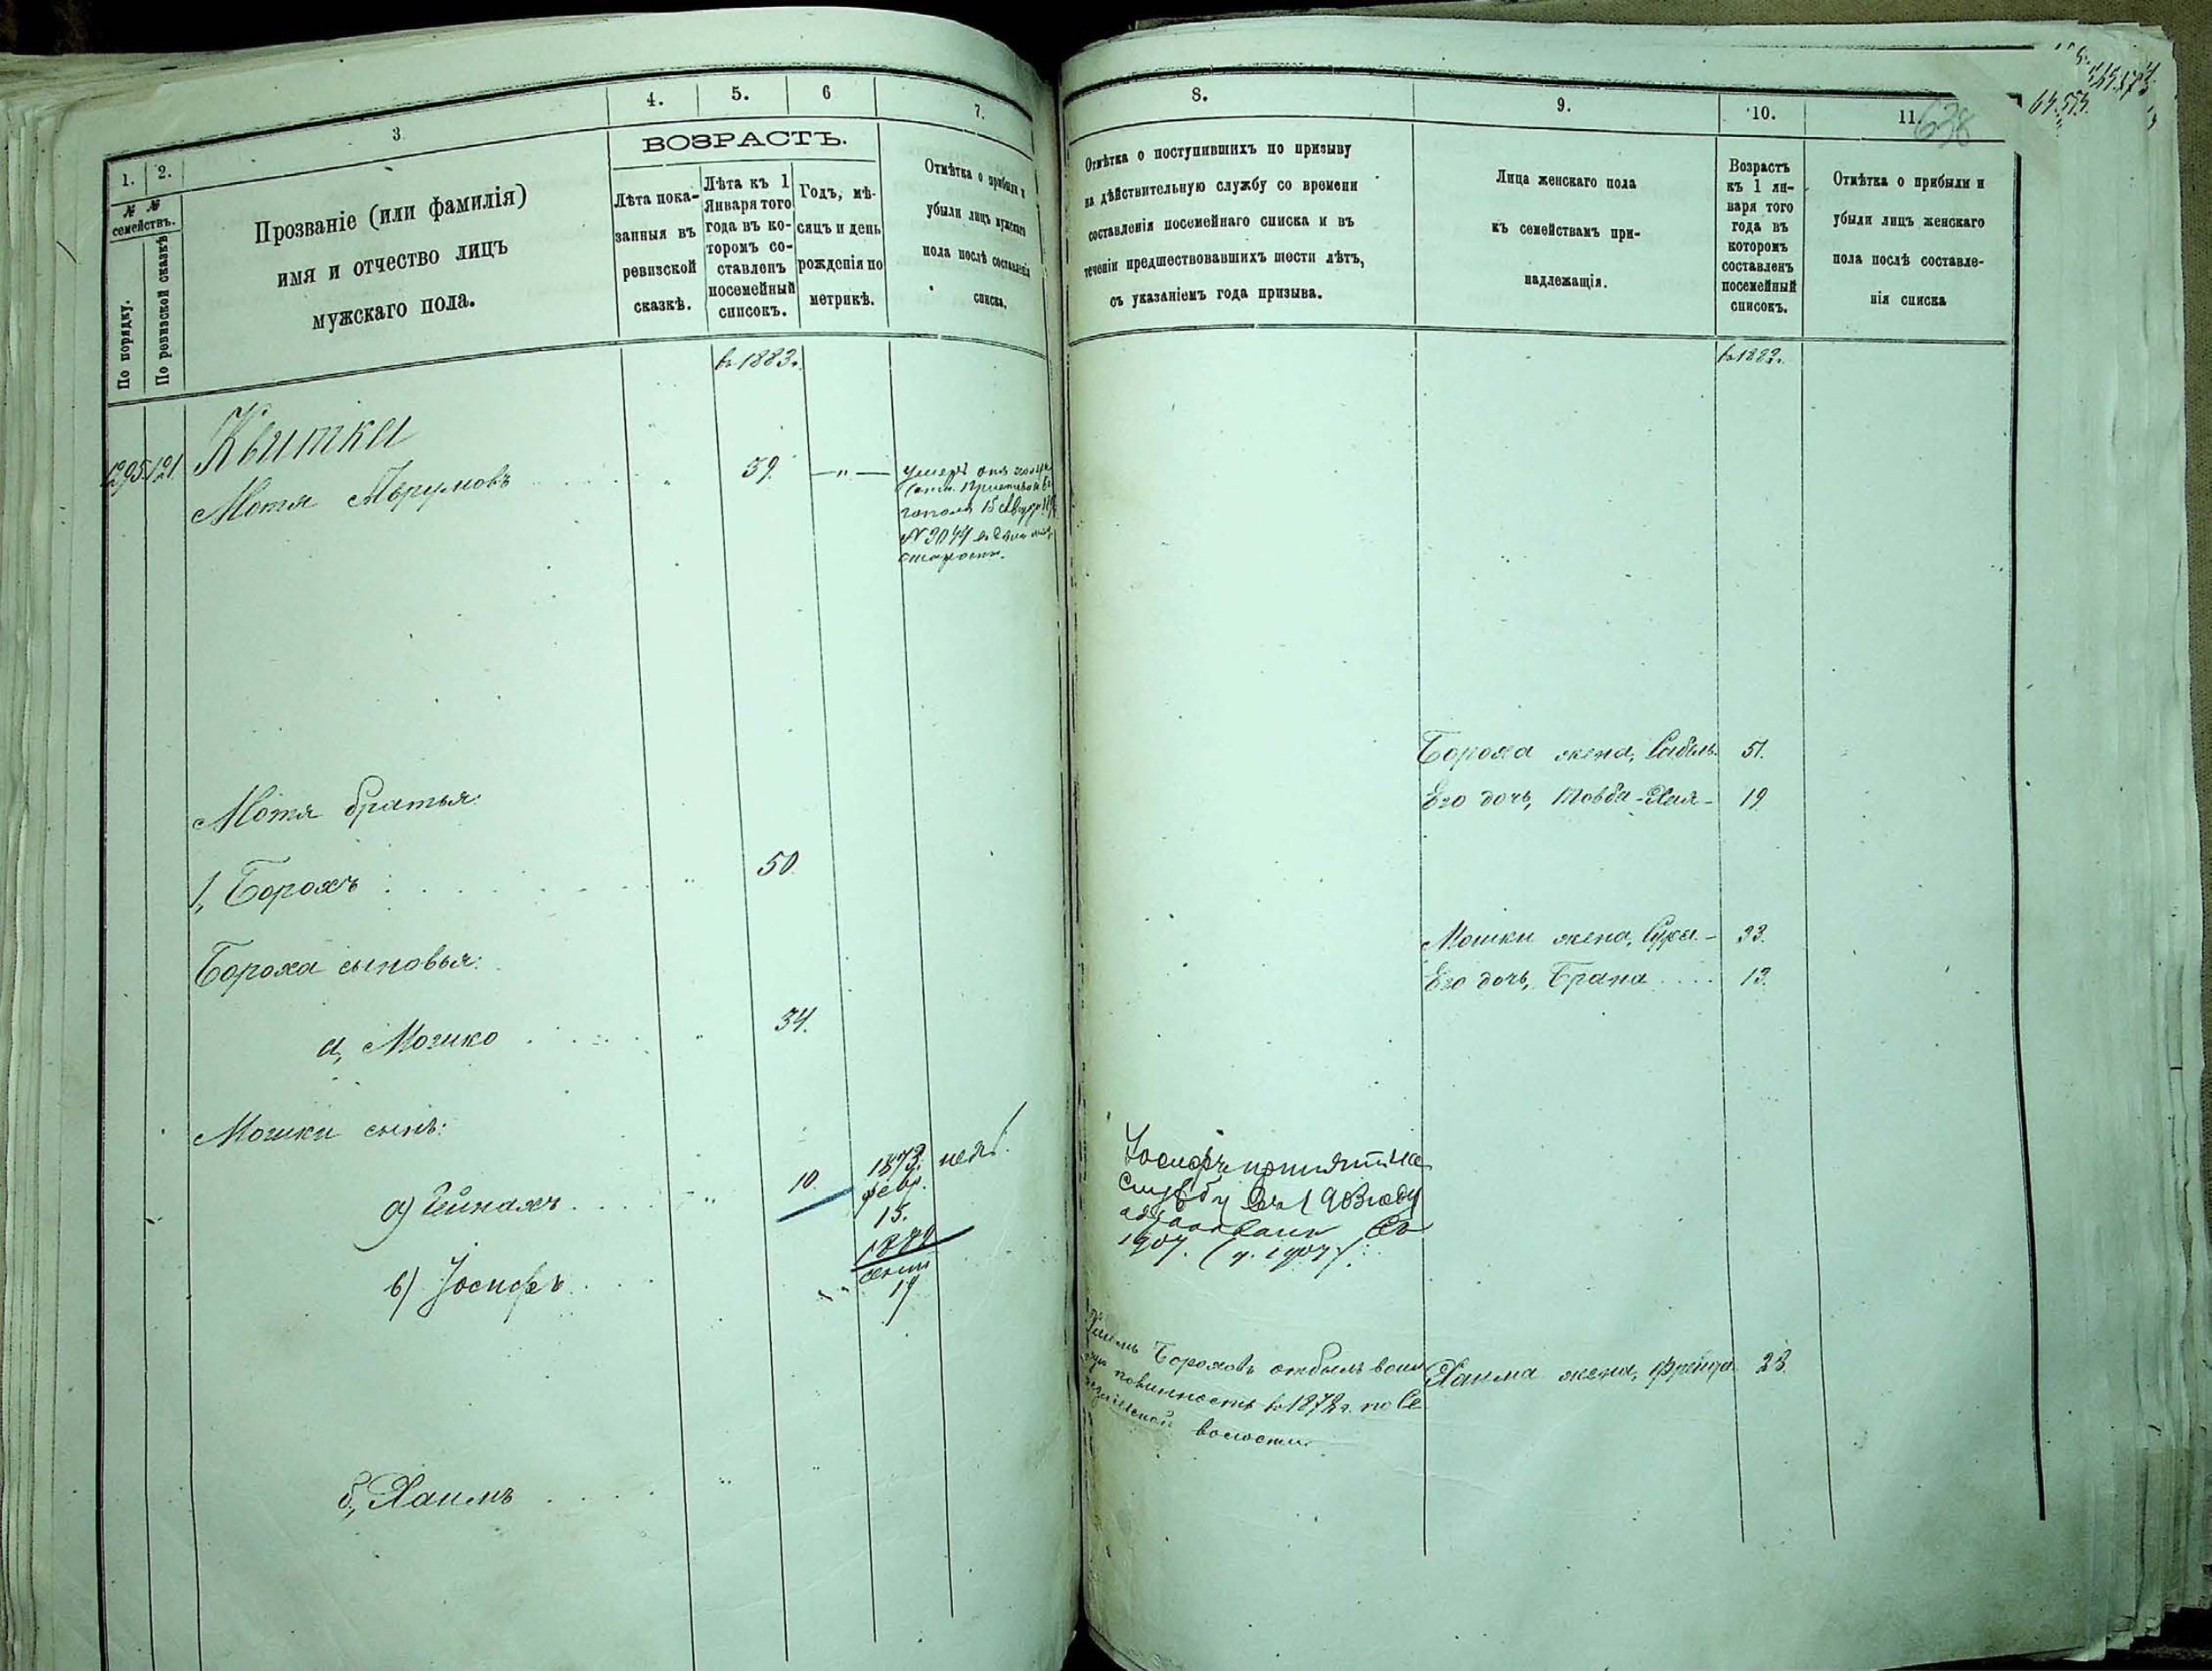 1.
2.
3
4.
5.
6
7.
ВОЗРАСТЪ.
№ №
семействъ.
По порядку.
По ревизской сказкѣ
Прозваніе (или фамилія)
имя и отчество лицъ
мужскаго пола.
Лѣта пока-
занныя въ
ревизской
сказкѣ.
Лѣта къ 1
Января того
года въ ко-
торомъ со-
ставленъ
посемейный
списокъ.
Годъ, мѣ-
сяцъ и день
рожденія по
метрикѣ.
Отмѣтка о прибыли и
убыли лицъ мужскаго
пола послѣ составленія
списка.
въ 1883.
1295. 121
Квитка
Мотя Аврумовъ 59. — „ —
умеръ
15
№ 2044
Мотя братья:
1, Борохъ 50.
Бороха сыновья:
а, Мошко 34.
Мошки сынъ:
а) Пинхасъ 10. 1873.
февр.
15.
в) Іосифъ 1882
сент
17
б, Хаимъ
8.
9.
10.
11.
638
Отмѣтка о поступившихъ по призыву
на дѣйствительную службу со времени
составленія посемейнаго списка и въ
теченіи предшествовавшихъ шести лѣтъ,
съ указаніемъ года призыва.
Лица женскаго пола
къ семействамъ при-
надлежащія.
Возрастъ
къ 1 ян-
варя того
года въ
которомъ
составленъ
посемейный
списокъ.
Отмѣтка о прибыли и
убыли лицъ женскаго
пола послѣ составле-
нія списка
въ 1883.
Бороха жена, 51.
Его дочь, Товба-Хая- 19
Мошки жена, Сура- 33.
Его дочь, Брана 13.
Іосифъ принятъ на
службу въ 1903 году
въ
1907.
Хаимъ Бороховъ отбылъ воин
скую повинность въ 1878 г. по Се
волости.
Хаима жена, Фрейда 23.